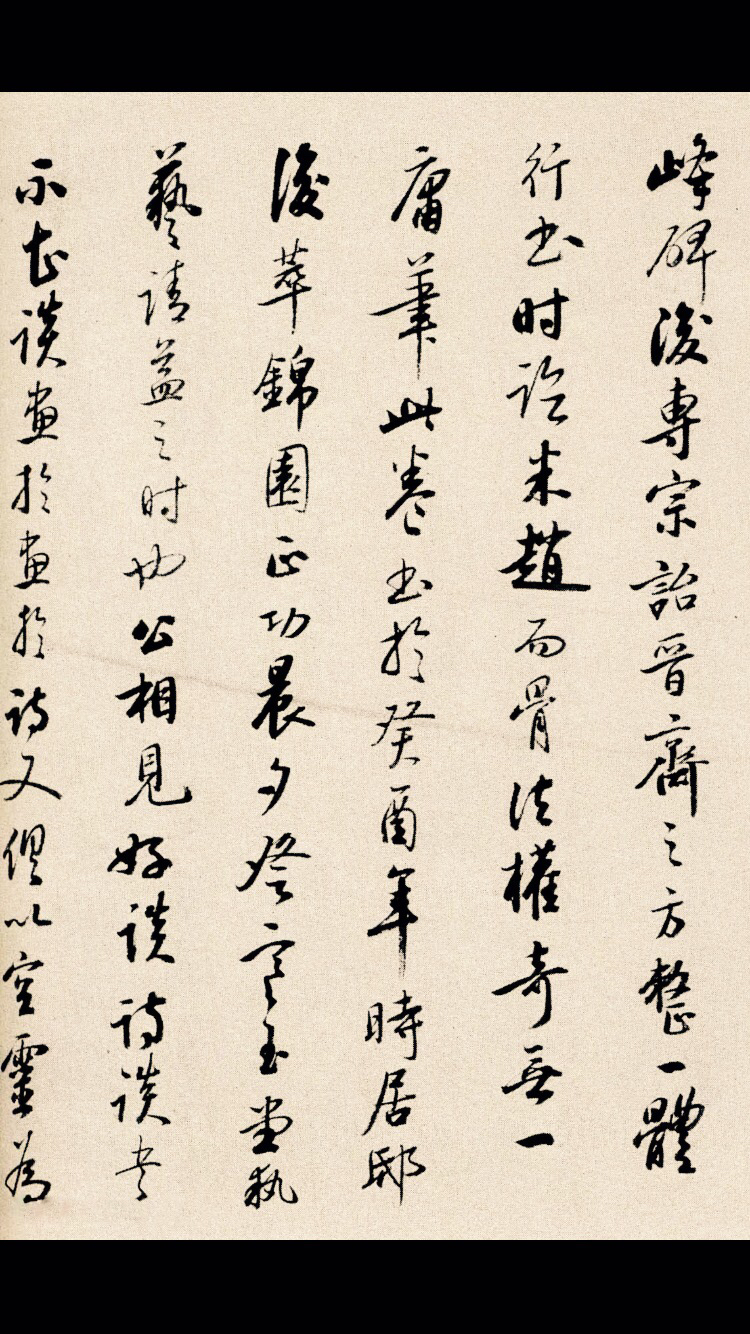 峰碑後專宗詒晉齋之方整一體
行书时米趙而骨法權奇無一
庸筆此卷书於癸酉年時居邸
後萃錦園正功晨夕登寒玉堂執
藝請益之时也公相見好談詩談书
不甚談畫於畫於詩又俱以空靈為